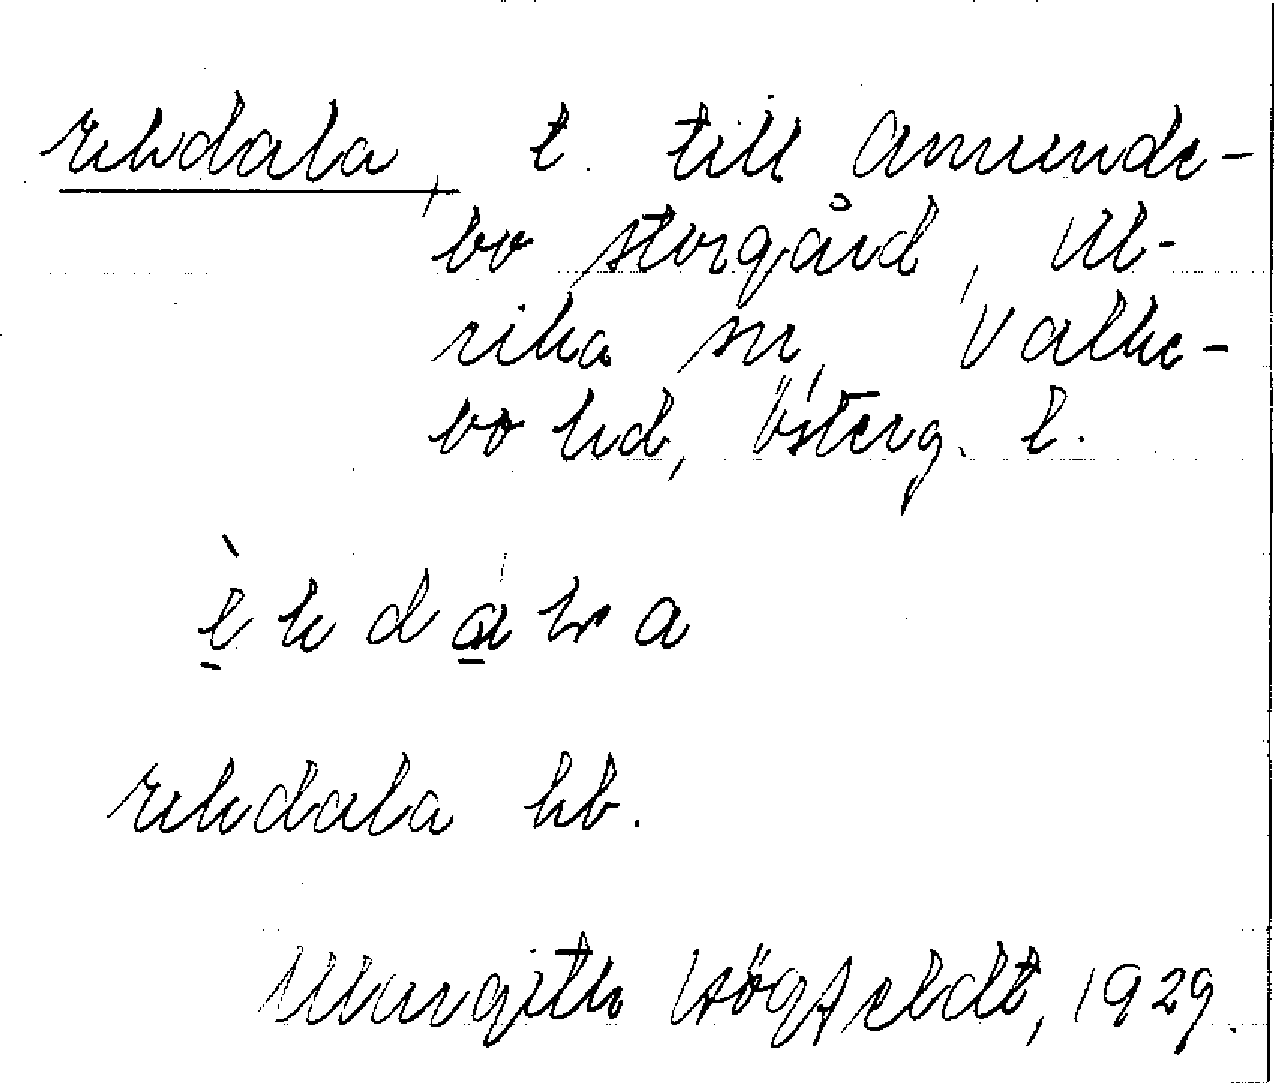 Ekdala, t. till Amunde-
bo storgård, Ul-
rika sn, Valke-
bo hd, Österg. l.
èkdàla
Ekdala hb.
Margith Högfeldt, 1929.